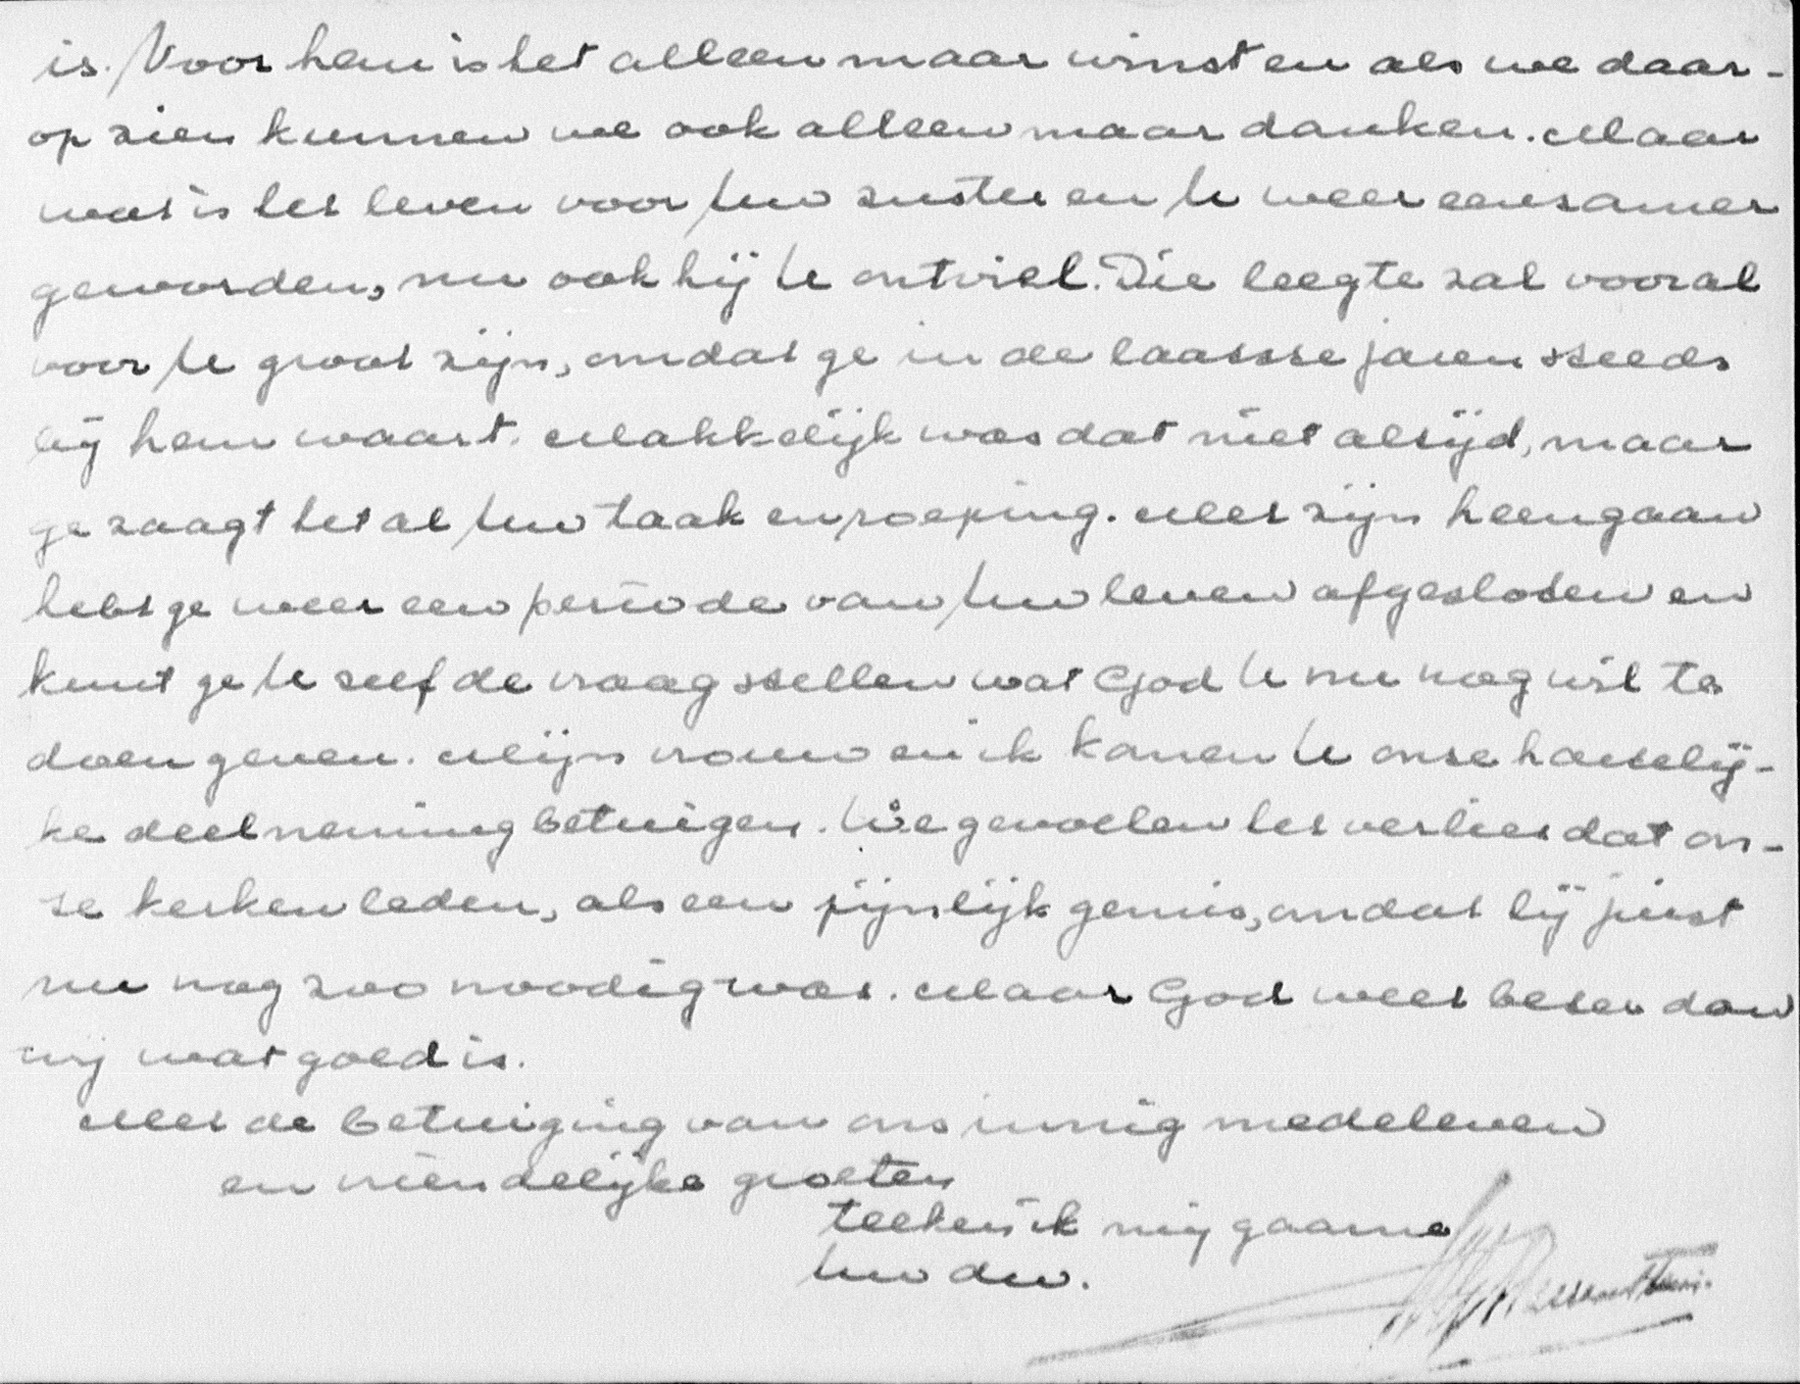 is. Voor hem is het alleen maar winst en als we daar-
op zien kunnen we ook alleen maar danken. Maar
wat is het leven voor Uw zuster en U weer eenzamer
geworden, nu ook hij U ontviel. Die leegte zal vooral
voor U groot zijn, omdat ge in de laatste jaren steeds
bij hem waart. Makkelijk was dat niet altijd, maar
ge zaagt het als Uw taak en roeping. Met zijn heengaan
hebt ge weer een periode van Uw leven afgesloten en
kunt ge U zelf de vraag stellen wat God U nu nog wil te
doen geven. Mijn vrouw en ik komen U onze hartelij-
ke deelneming betuigen. We gevoelen het verlies dat on-
ze kerken leden, als een pijnlijk gemis, omdat hij juist
nu nog zoo noodig was. Maar God weet beter dan
wij wat goed is.
Met de betuiging van ons innig medeleven
en vriendelijke groeten
teeken ik mij gaarne
Uw dw.